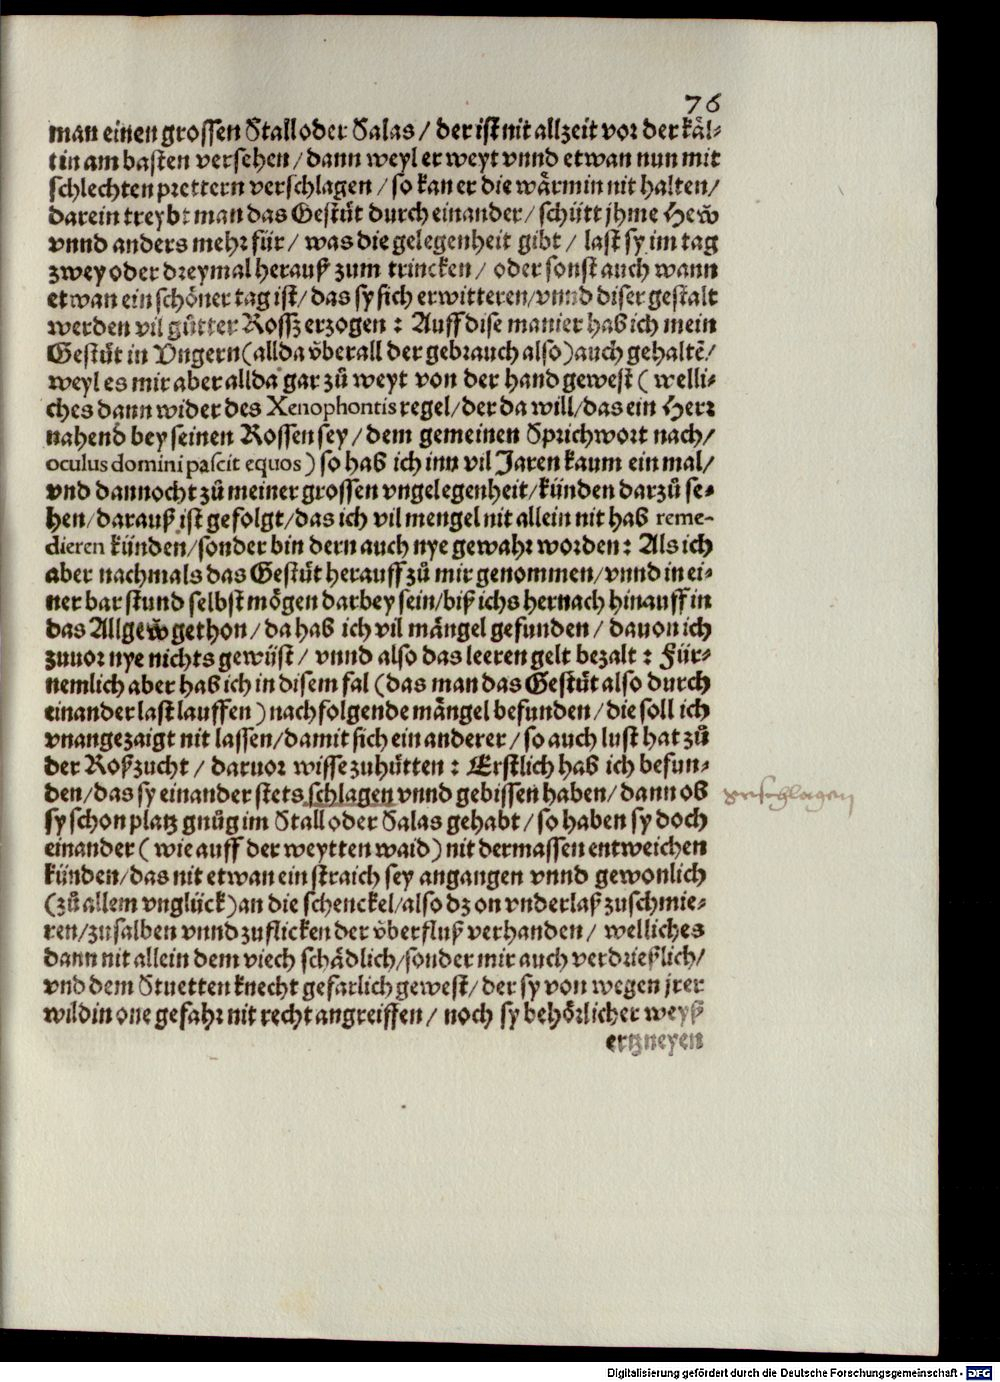 76
man einen grossen Stall oder Salas / der ist nit allzeit vor der käl-
tin am basten versehen / dann weyl er weyt vnnd etwan nun mit
schlechten prettern verschlagen / so kan er die wärmin nit halten /
darein treybt man das Gestüt durch einander / schütt jhme Hew̆
vnnd anders mehr für / was die gelegenheit gibt / last sy im tag
zwey oder dreymal herauß zum trincken / oder sonst auch wann
etwan ein schöner tag ist / das sy sich erwitteren / vnnd diser gestalt
werden vil gůtter Rossz erzogen : Auff dise manier hab ich mein
Gestüt in Vngern (allda v̈berall der gebrauch also) auch gehaltẽ /
weyl es mir aber allda gar zů weyt von der hand gewest ( welli-
ches dann wider des Xenophontis regel / der da will / das ein Herr
nahend bey seinen Rossen sey / dem gemeinen Sprichwort nach /
oculus domini pascit equos ) so hab ich inn vil Jaren kaum ein mal /
vnd dannocht zů meiner grossen vngelegenheit / künden darzů se-
hen / darauß ist gefolgt / das ich vil mengel nit allein nit hab reme-
dieren künden / sonder bin dern auch nye gewahr worden : Als ich
aber nachmals das Gestüt herauff zů mir genommen / vnnd in ei-
ner bar stund selbst mögen darbey sein / biß ichs hernach hinauff in
das Allgew̆ gethon / da hab ich vil mängel gefunden / dauon ich
zuuor nye nichts gewüst / vnnd also das leeren gelt bezalt : Für-
nemlich aber hab ich in disem fal (das man das Gestüt also durch
einander last lauffen ) nachfolgende mängel befunden / die soll ich
vnangezaigt nit lassen / damit sich ein anderer / so auch lust hat zů
der Roßzucht / daruor wisse zuhütten : Erstlich hab ich befun-
den / das sy einander stets schlagen vnnd gebissen haben / dann ob
verschlagen
sy schon platz gnůg im Stall oder Salas gehabt / so haben sy doch
einander ( wie auff der weytten waid ) nit dermassen entweichen
künden / das nit etwan ein straich sey angangen vnnd gewonlich
(zů allem vnglück) an die schenckel / also dz on vnderlaß zuschmie-
ren / zu salben vnnd zuflicken der v̈berfluß verhanden / welliches
dann nit allein dem viech schädlich / sonder mir auch verdrießlich /
vnd dem Stuetten knecht gefarlich gewest / der sy von wegen jrer
wildin one gefahr nit recht angreiffen / noch sy behörlicher weyß
ertzneyen
Digitalisierung gefördert durch die Deutsche Forschungsgemeinschaft - DFG